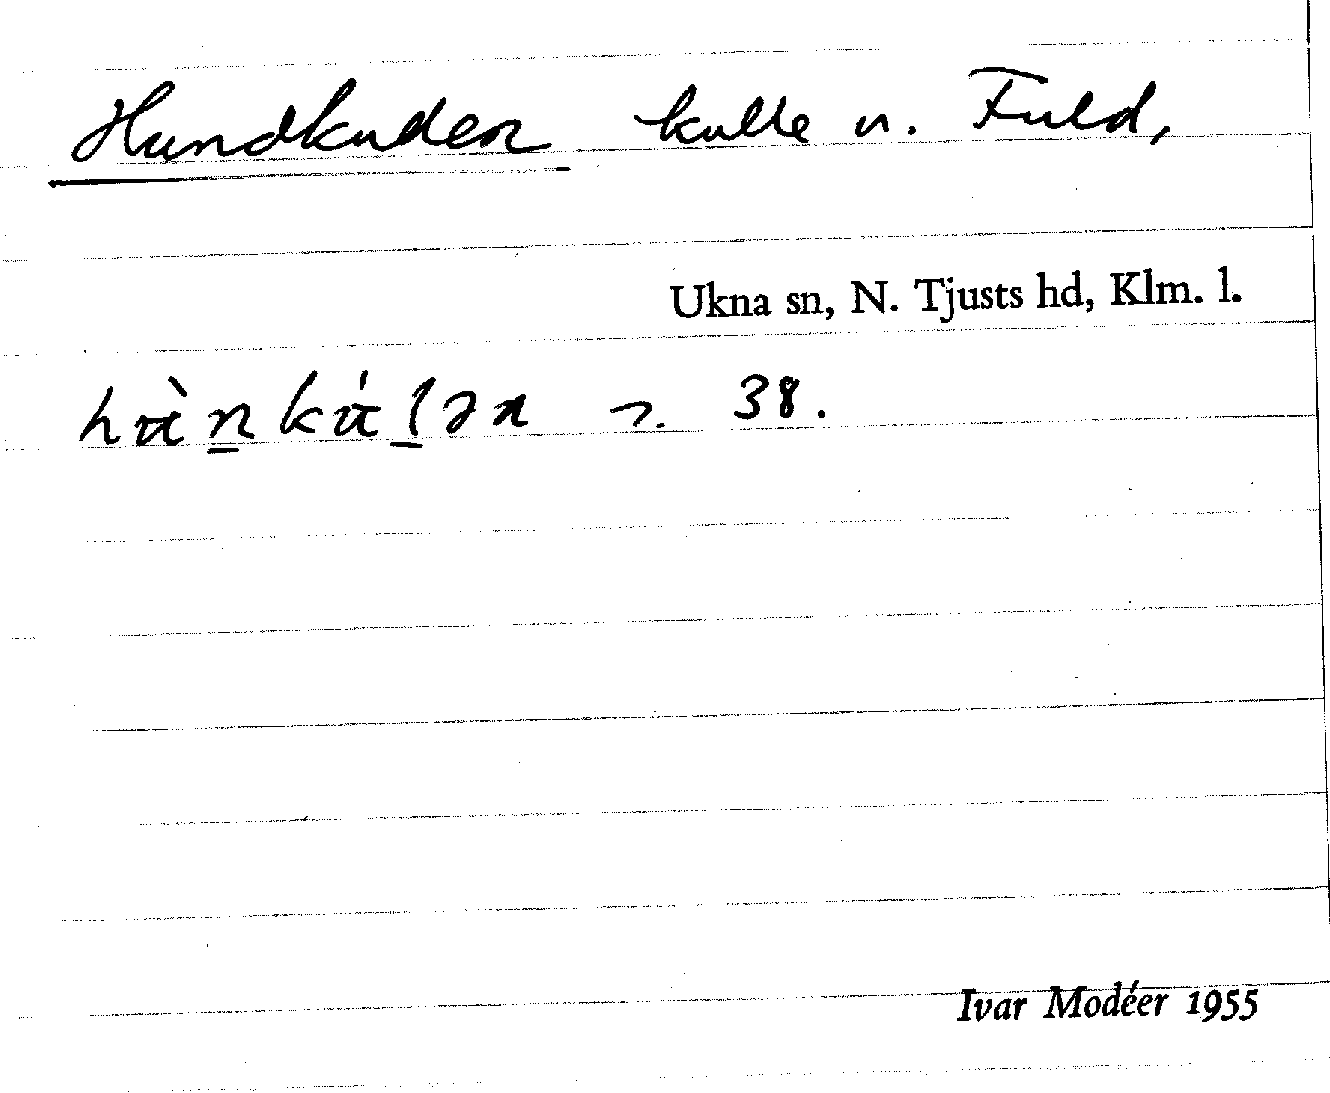 Hundkullen kulle n. Fuld,
Ukna sn, N. Tjusts hd, Klm. l.
38.
Ivar Modéer 1955